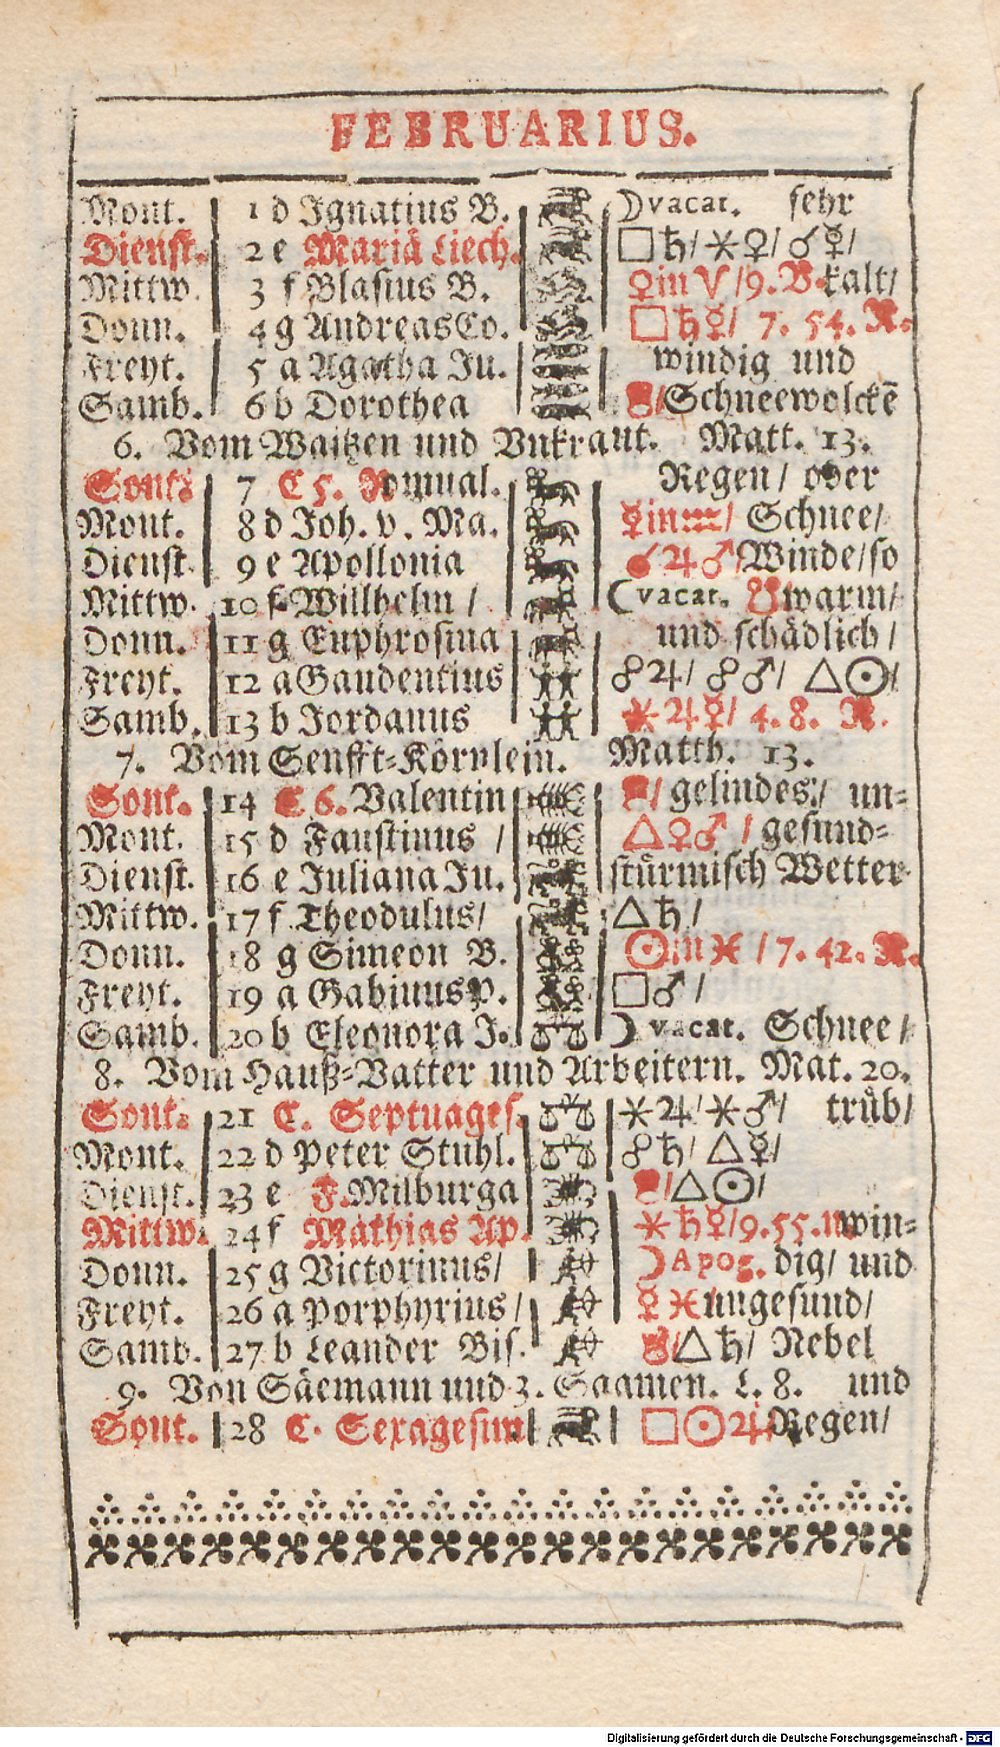 FEBRUARIUS.
Mont. 1 d Ignatius B. ☽ vacat. sehr
Dienst. 2 e Mariä Liech. □♄/ ⚹♀/ ☌☿/
Mittw. 3 f Blasius B. ♀in V /9. V. kalt/
Donn. 4 g Andreas Co. □♄☿/ 7. 54. N.
Freyt. 5 a Agatha Ju. windig und
Samb. 6 b Dorothea /Schneewolckē
6. Vom Waitzen und Vnkraut. Matt. 13.
Sont. 7 C 5. Romual. Regen/ oder
Mont. 8 d Joh. v. Ma. ☿in♒/ Schnee/
Dienst. 9 e Apollonia ☌♃♂ Winde/so
Mittw. 10 f Willhelm / ☾vacat. warm/
Donn. 11 g Euphrosina und schädlich/
Freyt. 12 a Gaudentius ☍♃/ ☍♂/ △☉/
Samb. 13 b Jordanus ⚹♃☿/ 4. 8. N.
7. Vom Senfft-Körnlein. Matth. 13.
Sont. 14 C 6. Valentin / gelindes/ un-
Mont. 15 d Faustinus / △♀♂ / gesund-
Dienst. 16 e Juliana Ju. stürmisch Wetter
Mittw. 17 f Theodulus/ △♄/
Donn. 18 g Simeon B. ☉in♓ /7. 42. N.
Freyt. 19 a Gabinus P. □♂/
Samb. 20 b Eleonora J. ☽ vacat. Schnee/
8. Vom Hauß-Vatter und Arbeitern. Mat. 20.
Sont. 21 C. Septuages. ⚹♃/⚹♂/ trüb/
Mont. 22 d Peter Stuhl. ☍♄/ △☿/
Dienst. 23 e F. Milburga /△☉/
Mittw. 24 f Mathias Ap. ⚹♄☿/9.55. win-
Donn. 25 g Victorinus/ ☽Apog. dig/ und
Freyt. 26 a Porphyrius/ ☿ ♓ ungesund/
Samb. 27 b Leander Bis. /△♄/ Nebel
9. Von Säemann und 3. Saamen. L. 8. und
Sont. 28 C. Sexagesim □☉♃ Regen/
Digitalisierung gefördert durch die Deutsche Forschungsgemeinschaft - DFG